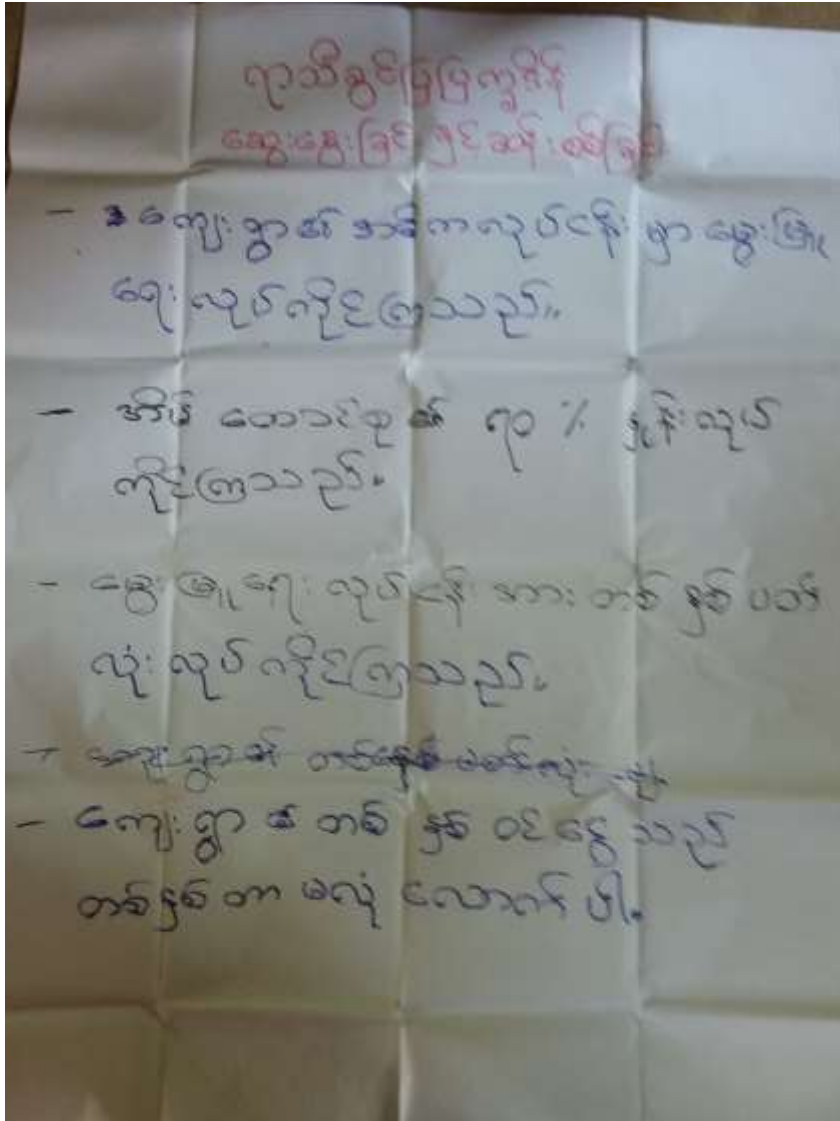 ရာသီခွင်ပြပြက္ခဒိန်
ဆွေးနွေးခြင်း နှင့် ဆန်းစစ်ခြင်း
- ကျေးရွာ၏ အဓိကလုပ်ငန်း မှာ မွေးမြူ
ရေး လုပ်ကိုင်ကြသည်။
- အိမ် ထောင်စု ၏ ၇၀ % နှုန်း လုပ်
ကိုင်ကြသည်။
- မွေးမြူရေး လုပ်ငန်း အား တစ် နှစ် ပတ်
လုံး လုပ် ကိုင်ကြသည်။
- ကျေးရွာ၏
- ကျေးရွာ ၏ တစ် နှစ် ဝင်ငွေ သည်
တစ်နှစ် တာ မလုံ လောက် ပါ။